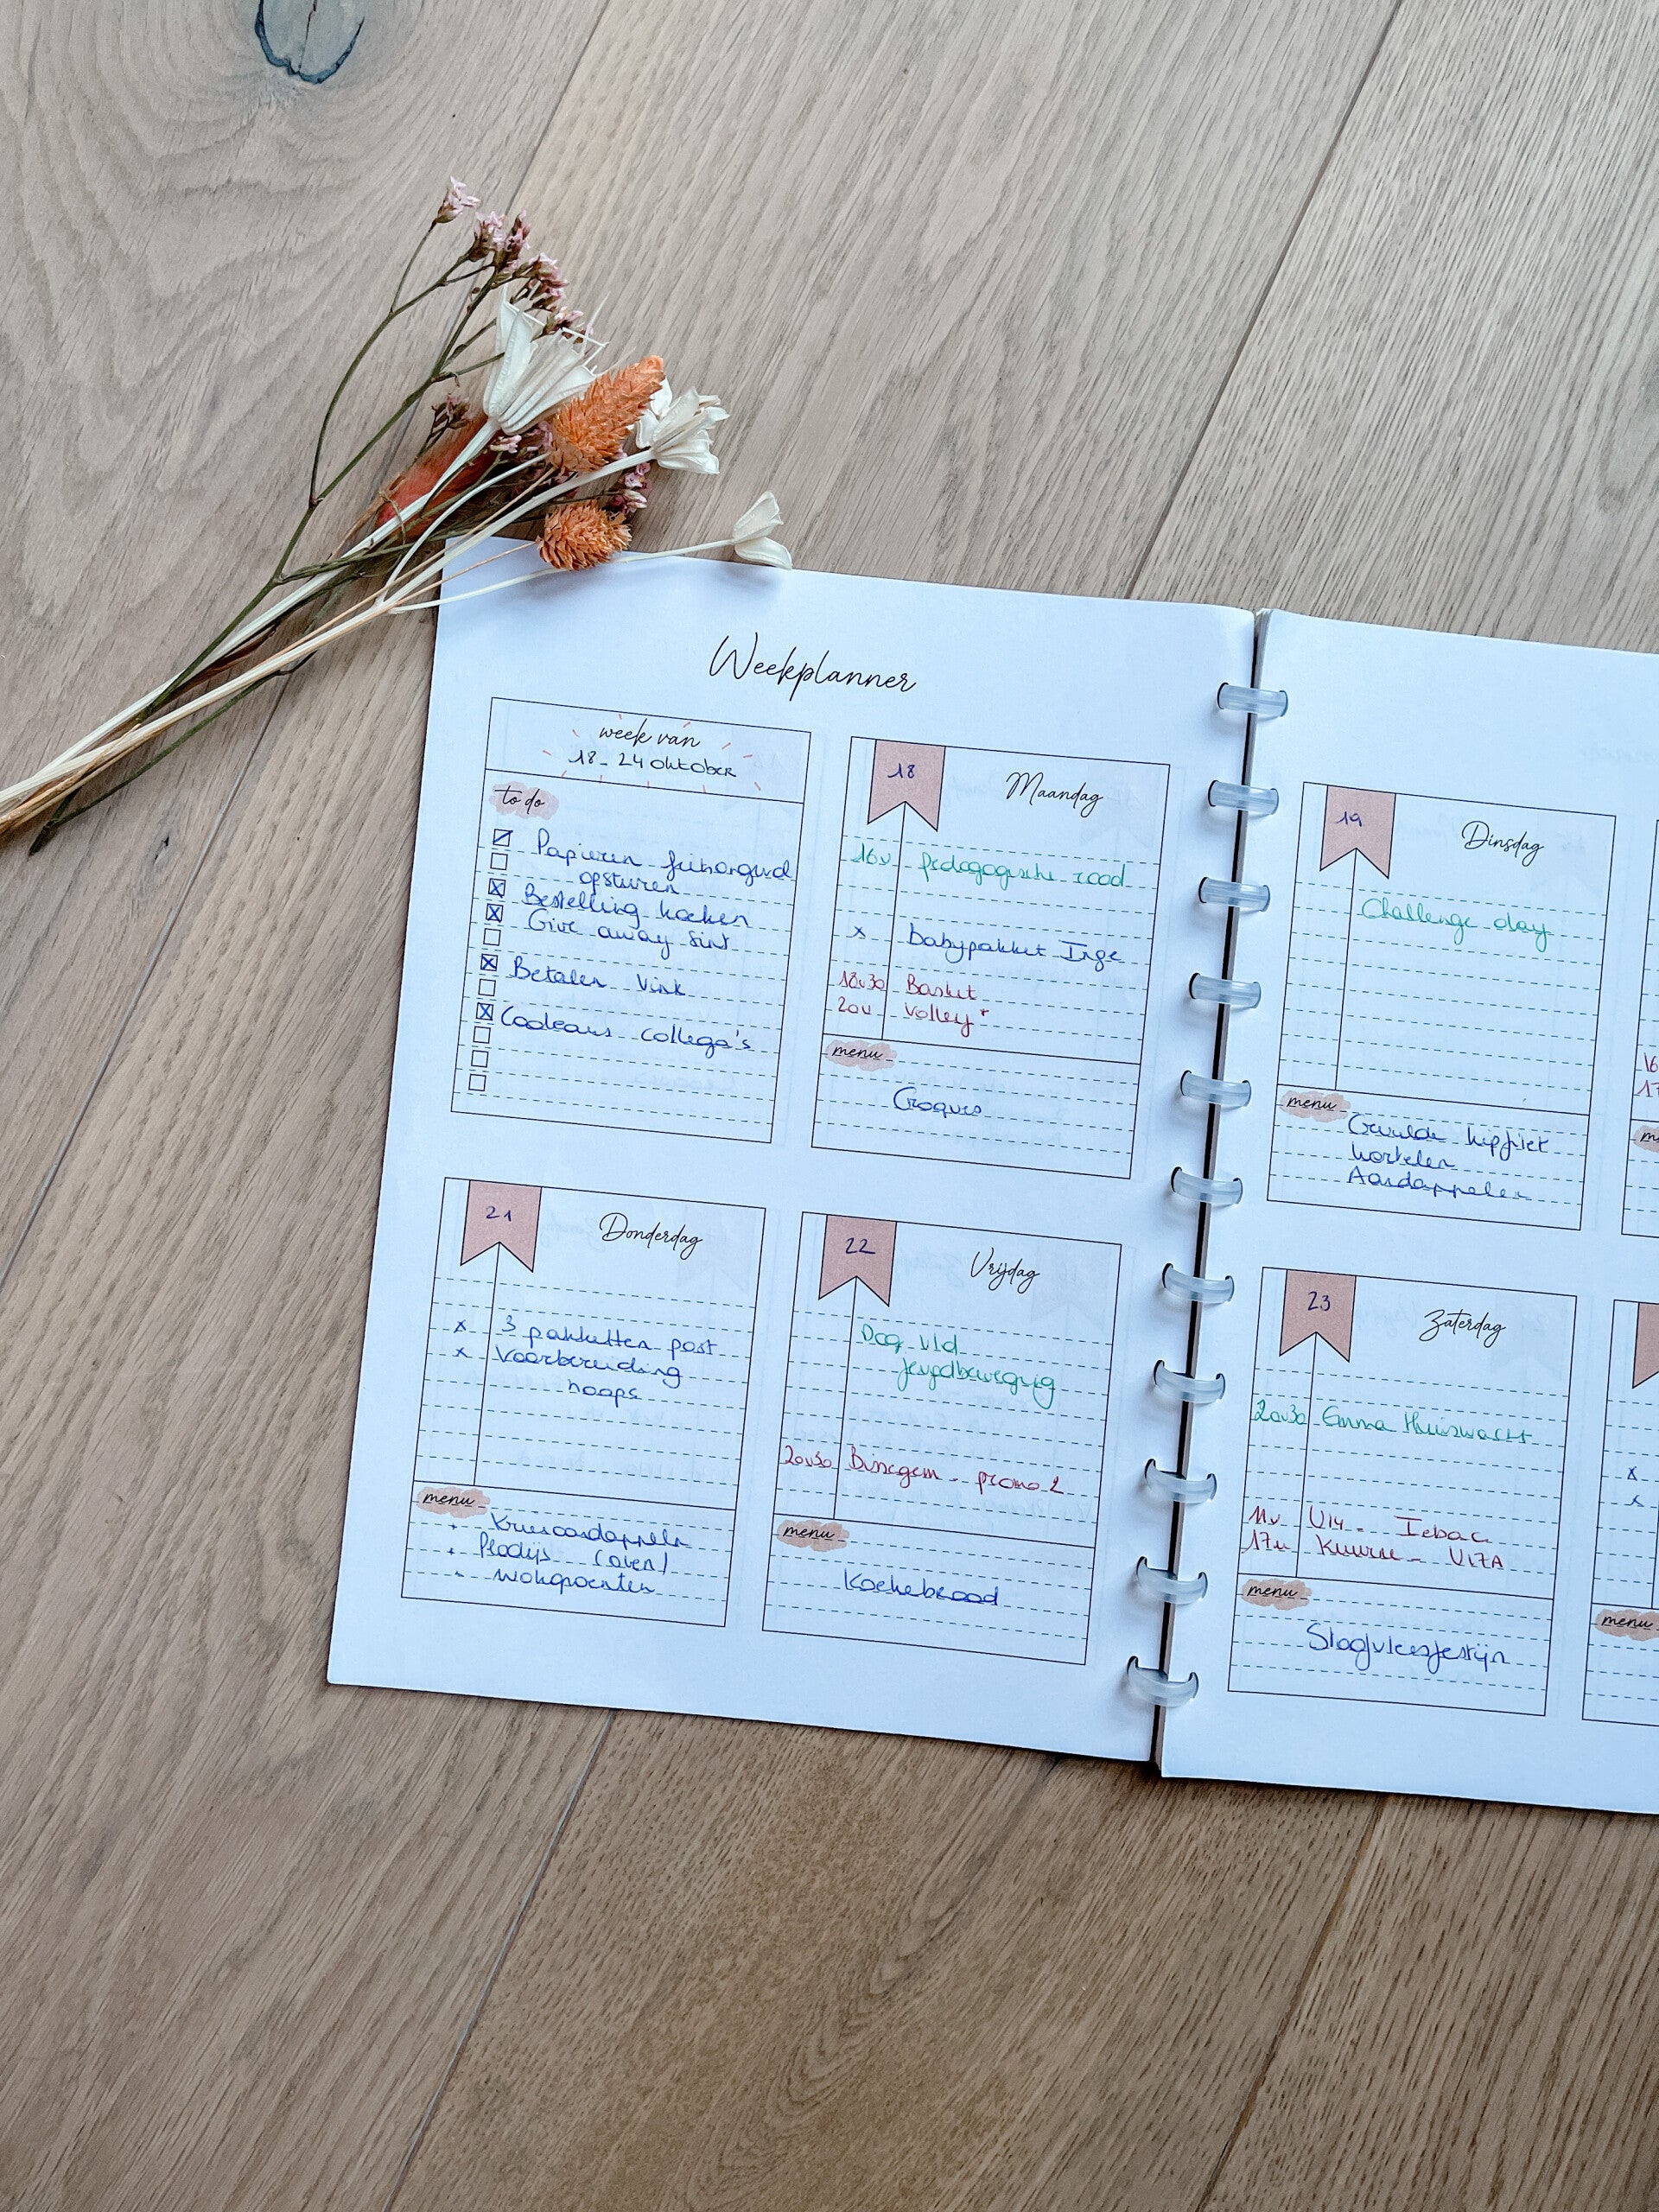 Weekplanner
week van
18 - 24 oktober
to do
Papieren
opsturen
Bestelling koeken
Give away Sint
Betalen Vink
Cadeaus collega's
18
Maandag
16u pedagogische raad
x babypakket Inge
18u30 Basket
20u Volley
menu
Croques
19
Dinsdag
Challenge day
menu
Gevulde kipfilet
wortelen
Aardappelen
16
17
21
Donderdag
x 3 pakketten post
x Voorbereiding
hoops
menu
Kruidaardappeln
Pladijs (oven)
wokgroenten
22
Vrijdag
Dag v/d
jeugdbeweging
20u30 Bissegem - promo 2
menu
Koekebrood
23
Zaterdag
20u30 Emma Thuiswacht
11u U14 -
17u Kuurne - U17A
menu
Slagvleesfestijn
x
x
menu